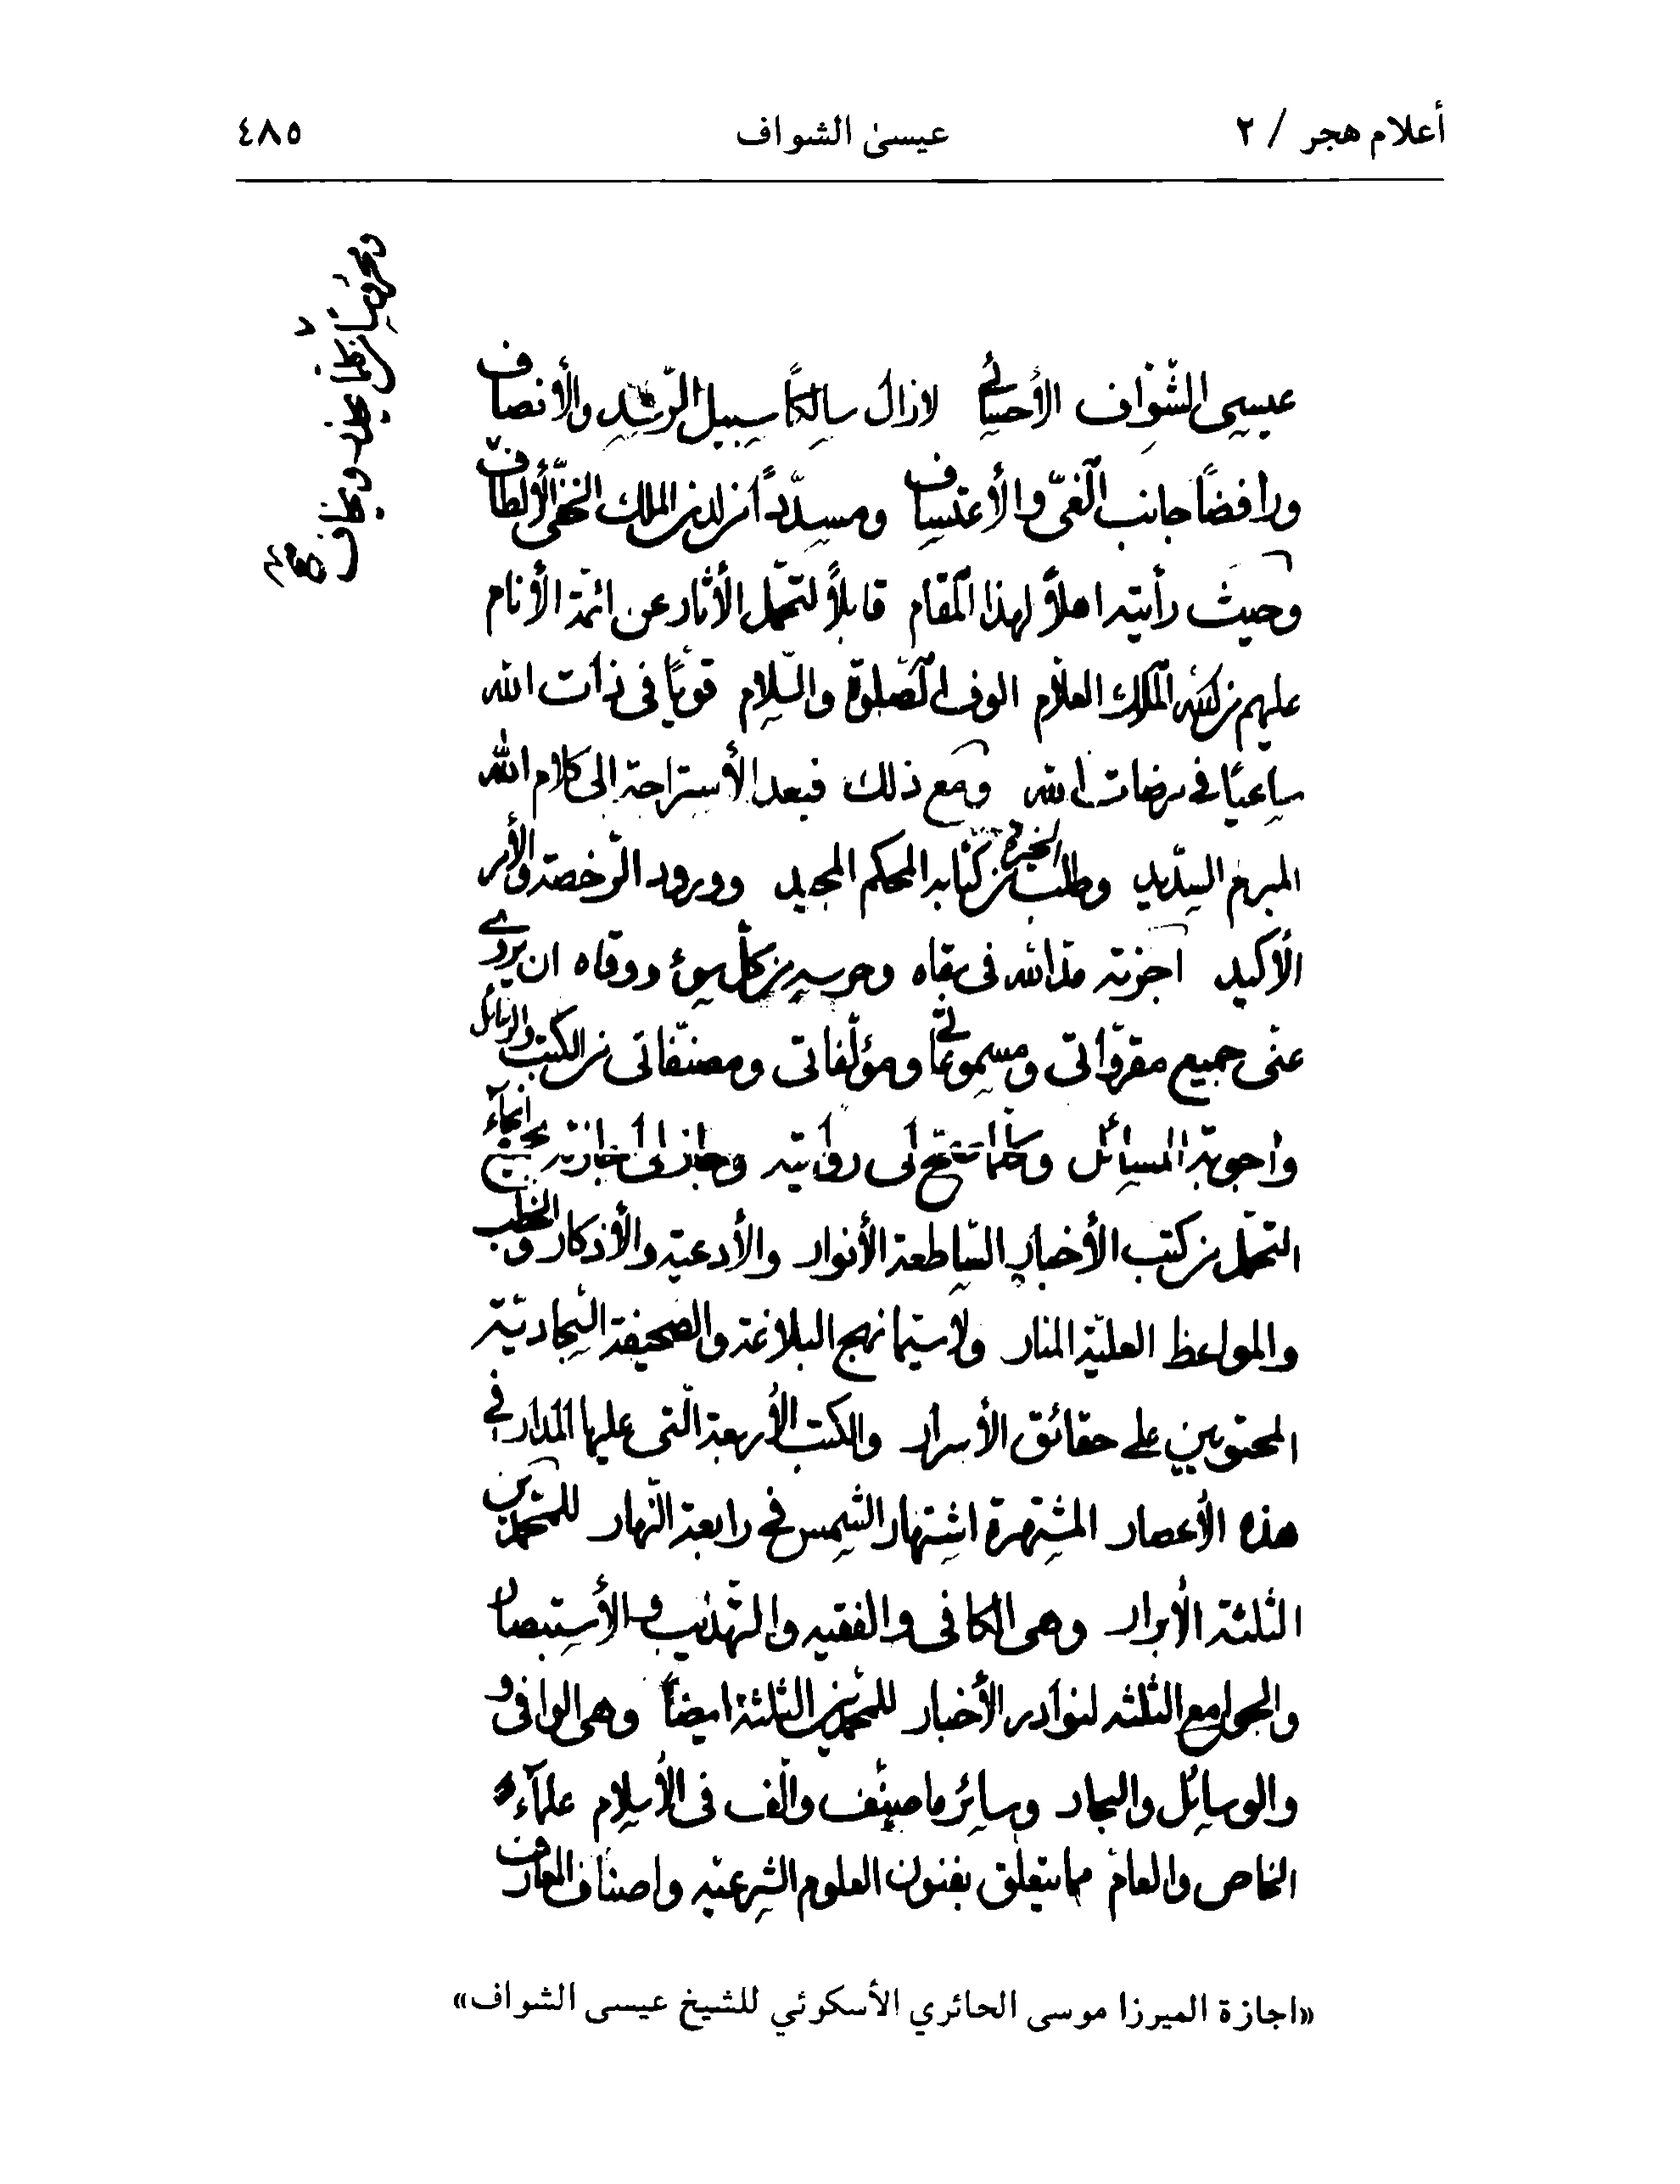 أعلام هجر / ٢
عيسىٰ الشواف
٤٨٥
عيسى الشّواف الأحسائي لازال سالكاً سبيل الرّشد والأنصاف
ورافضاً جانب الغيّ والأعتساف ومسدّداً من لدن الملك الخفيّ الألطاف
وحيث رأيته اهلاً لهذا المقام قابلاً لتحمّل الأثار عن ائمّة الأنام
عليهم من الله الملك العلّام الوف الصّلوة والسّلام قويّاً في ذات الله
ساعيًا في مرضات الله ومع ذلك فبعد الأستراحة الى كلام الله
المبرم السّديد وطلب الخيرة من كتابه المحكم المجيد وورود الرّخصة والأمر
الأكيد اجزته مدّ الله في بقاه وحرسه من كلّ سوء ووقاه ان يروي
عنّى جميع مقروّاتى ومسموعاتي ومؤلّفاتى ومصنّفاتى من الكتب والرسائل
واجوبة المسائل وكلّما تصحّ لى روايته وجاز لى اجازته بجميع انحآء
التحمّل من كتب الأخبار السّاطعة الأنوار والأدعية والأذكار والخطب
والمواعظ العليّة المنار ولاسيّما نهج البلاغة والصّحيفة السّجاديّة
المحتويين على حقائق الأسرار والكتب الأربعة الّتى عليها المدار في
هذه الأعصار المشتهرة اشتهار الشّمس في رابعة النّهار للمحمّدين
الثّلثة الأبرار وهى الكافى والفقيه والتّهذيب والأستبصار
والجوامع الثّلثه لنوادر الأخبار للمحمّدين الثّلثة ايضاً وهى الوافى و
والوسائل والبحار وسائر ما صنّف والّف فى الأسلام علمآء
الخاص والعام مما يتعلّق بفنون العلوم الشّرعيّه واصناف المعارف
«اجازة الميرزا موسى الحائري الأسكوئي للشيخ عيسى الشواف»